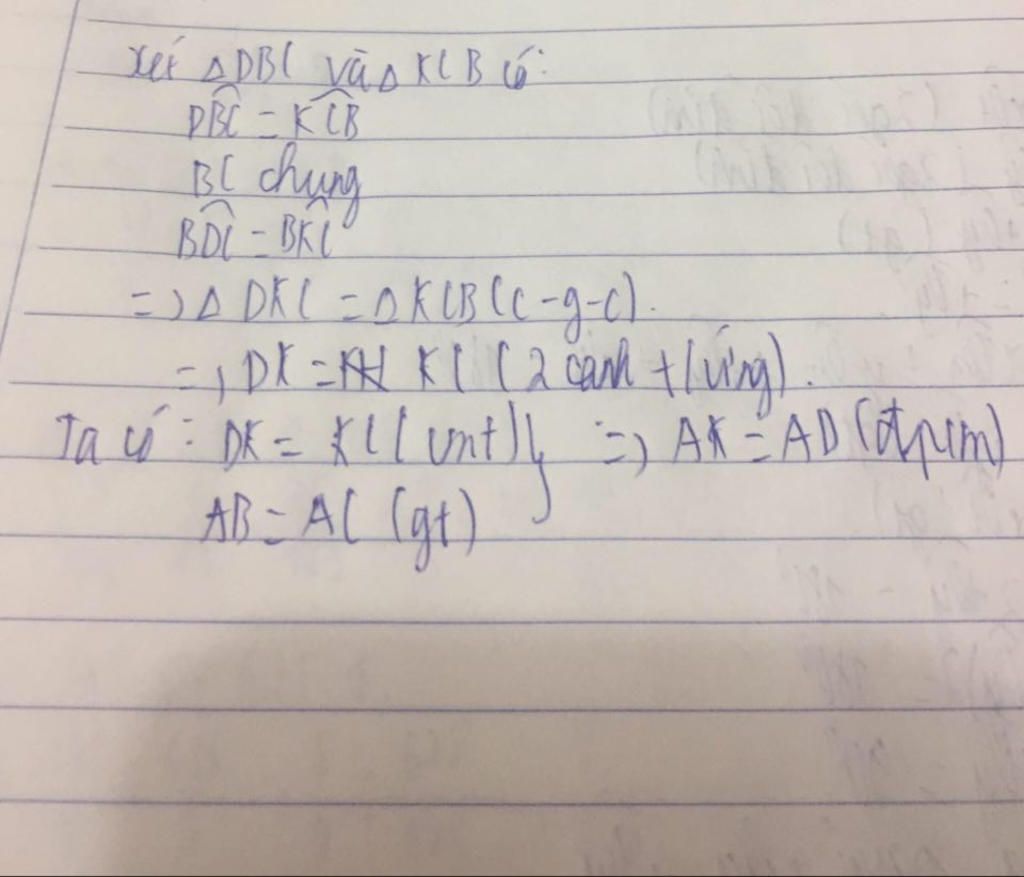 Xét △DBC và △KCB có:
DBC = KCB
BC chung
BDC = BKC
=> △DKC = △KCB (c-g-c).
=> DK = KC (2 cạnh t/ứng).
Ta có: DK = KC (cmt) } => AK = AD (đpcm)
AB = AC (gt)